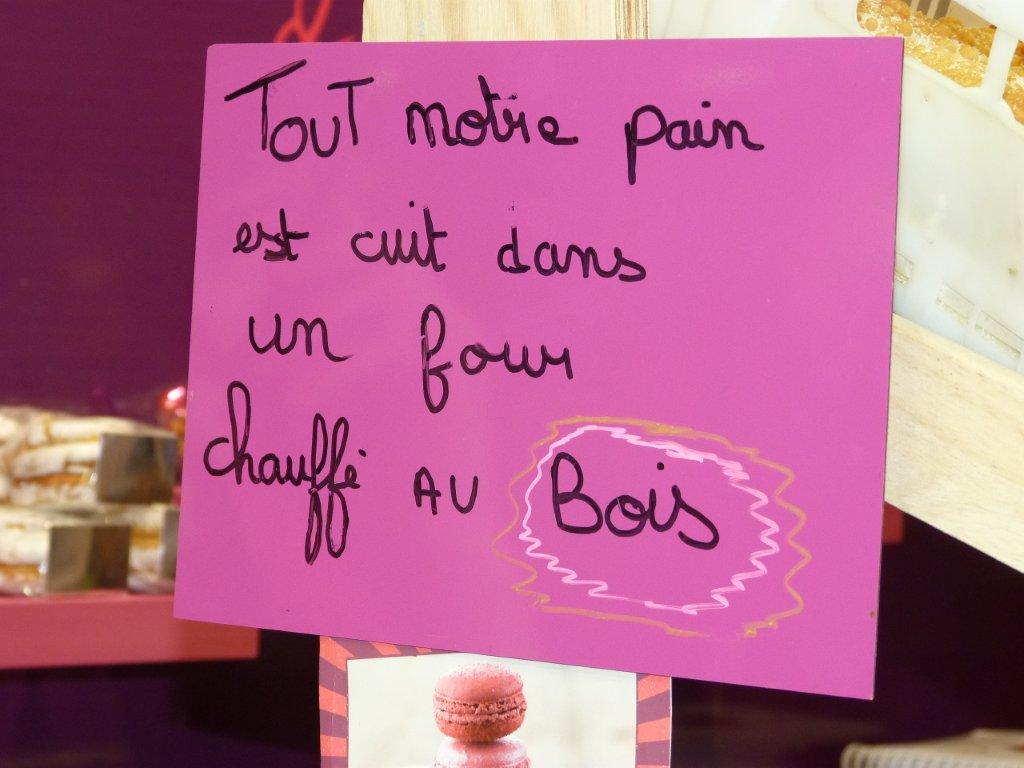 TOUT notre pain
est cuit dans
un four
chauffé AU Bois